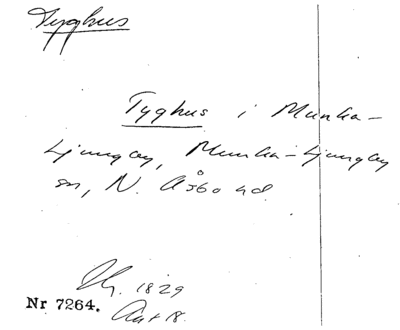 Tyghus
Tyghus i Munka-
Ljungby, Munka-Ljungby
sn, N. Åsbo hd.
1829
Nr 7264.